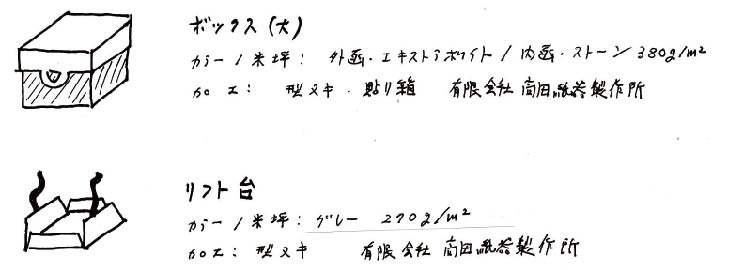 ボックス(大)
カラー/米坪: 外函・エキストラホワイト/内函・ストーン380g/m²
加工: 型ヌキ・貼り箱 有限会社高田紙器製作所
リフト台
カラー/米坪: グレー 270g/m²
加工: 型ヌキ 有限会社高田紙器製作所